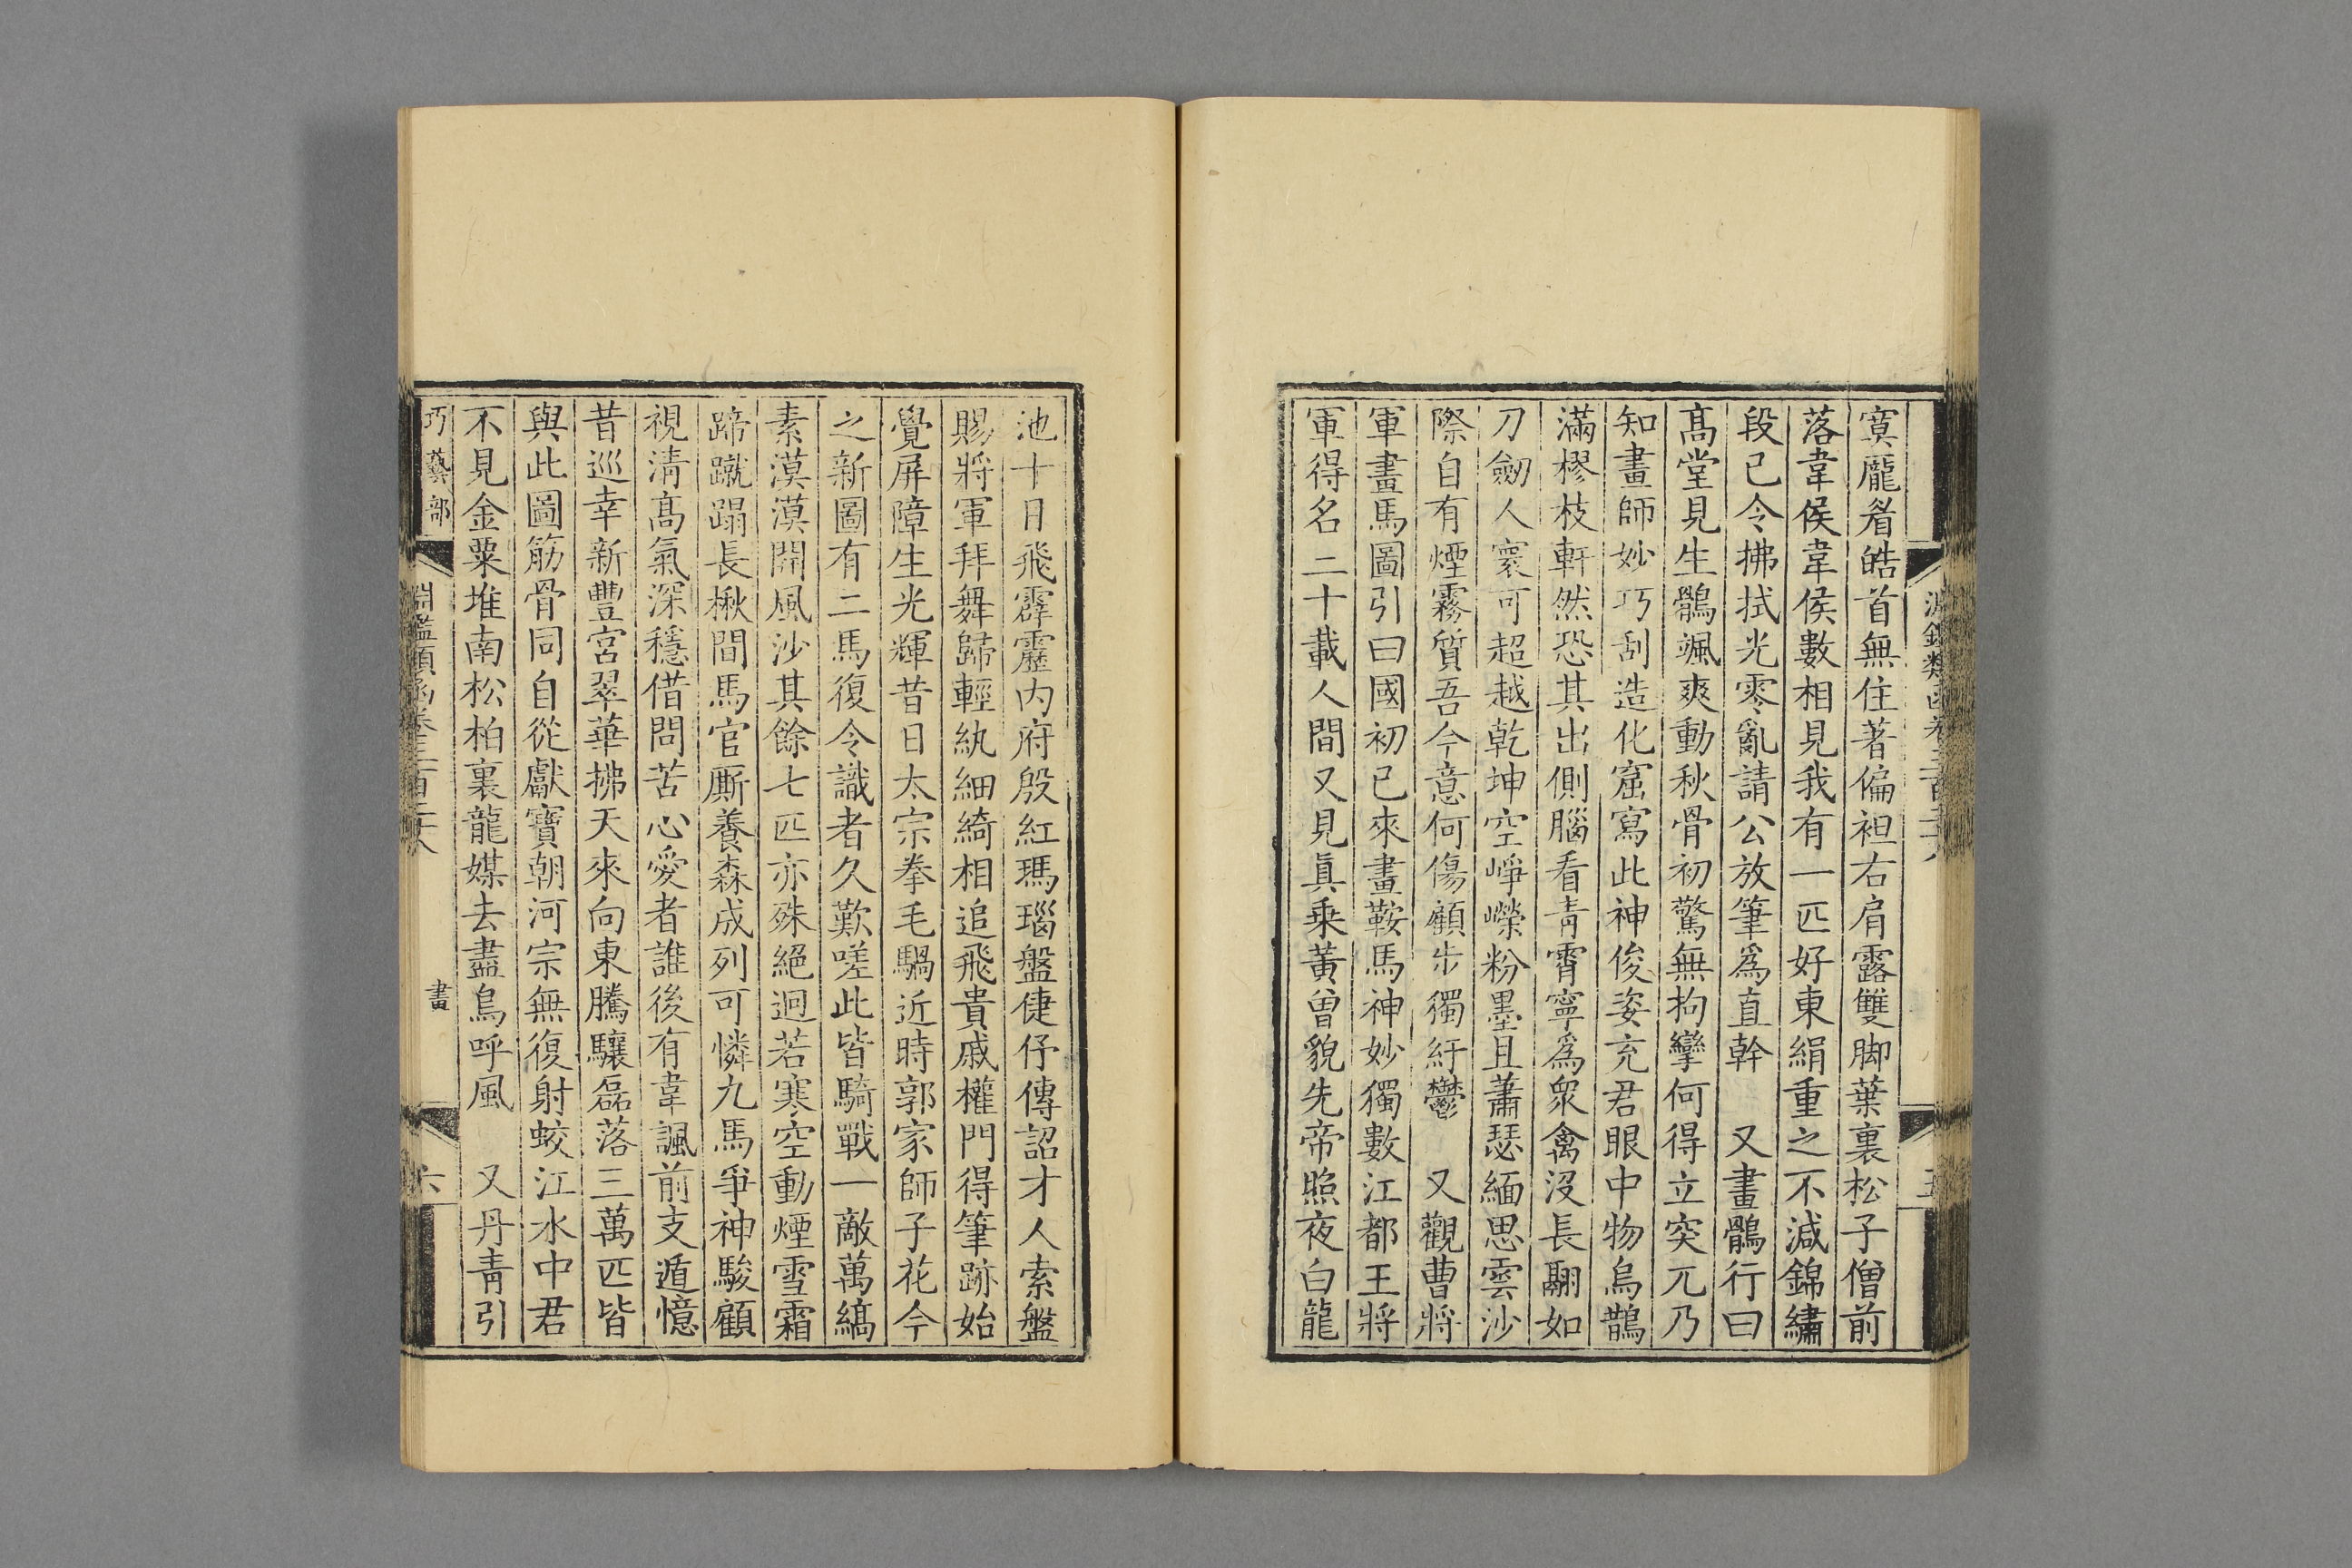 寞龎眉皓首無住著偏袒右肩露雙脚葉裏松子僧前
落韋侯韋侯數相見我有一匹好東絹重之不減錦繡
段已令拂拭光零亂請公放筆爲直幹　又畫鶻行曰
高堂見生鶻颯爽動秋骨初驚無拘攣何得立突兀乃
知畫師妙巧刮造化窟寫此神俊姿充君眼中物烏鵲
滿樛枝軒然恐其出側腦看青霄寧爲衆禽沒長翮如
刀劒人寰可超越乾坤空崢嶸粉墨且蕭瑟緬思雲沙
際自有煙霧質吾今意何傷顧步獨紆鬱　又觀曹將
軍畫馬圖引曰國初已來畫鞍馬神妙獨數江都王將
軍得名二十載人間又見眞乗黃曾貌先帝照夜白龍
池十日飛霹靂内府殷紅瑪瑙盤倢伃傳詔才人索盤
賜將軍拜舞歸輕紈細綺相追飛貴戚權門得筆跡始
覺屏障生光輝昔日太宗拳毛騧近時郭家師子花今
之新圖有二馬復令識者久歎嗟此皆騎戰一敵萬縞
素漠漠開風沙其餘七匹亦殊絕迥若寒空動煙雪霜
蹄蹴蹋長楸間馬官厮養森成列可憐九馬爭神駿顧
視清高氣深穩借問苦心愛者誰後有韋諷前支遁憶
昔巡幸新豐宮翠華拂天來向東騰驤磊落三萬匹皆
與此圖筋骨同自從獻寶朝河宗無復射蛟江水中君
不見金粟堆南松柏裏龍媒去盡鳥呼風　又丹青引
巧藝部
淵鑑類函卷三百二十八
畫
六